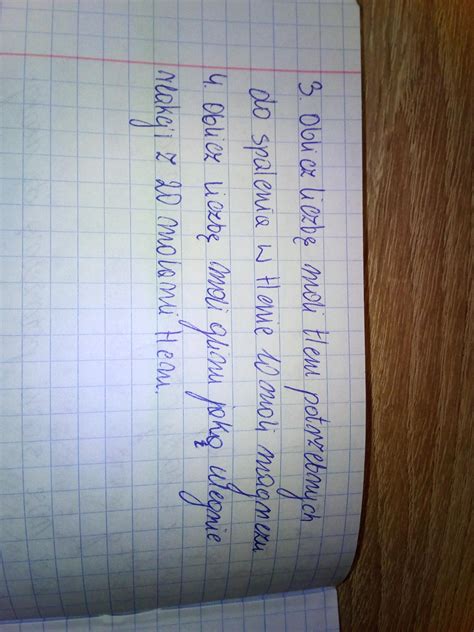 3. Oblicz liczbę moli tlenu potrzebnych
do spalenia w tlenie 10 moli magnezu
4. Oblicz liczbę moli glinu jaką ulegnie
reakcji z 20 molami tlenu.